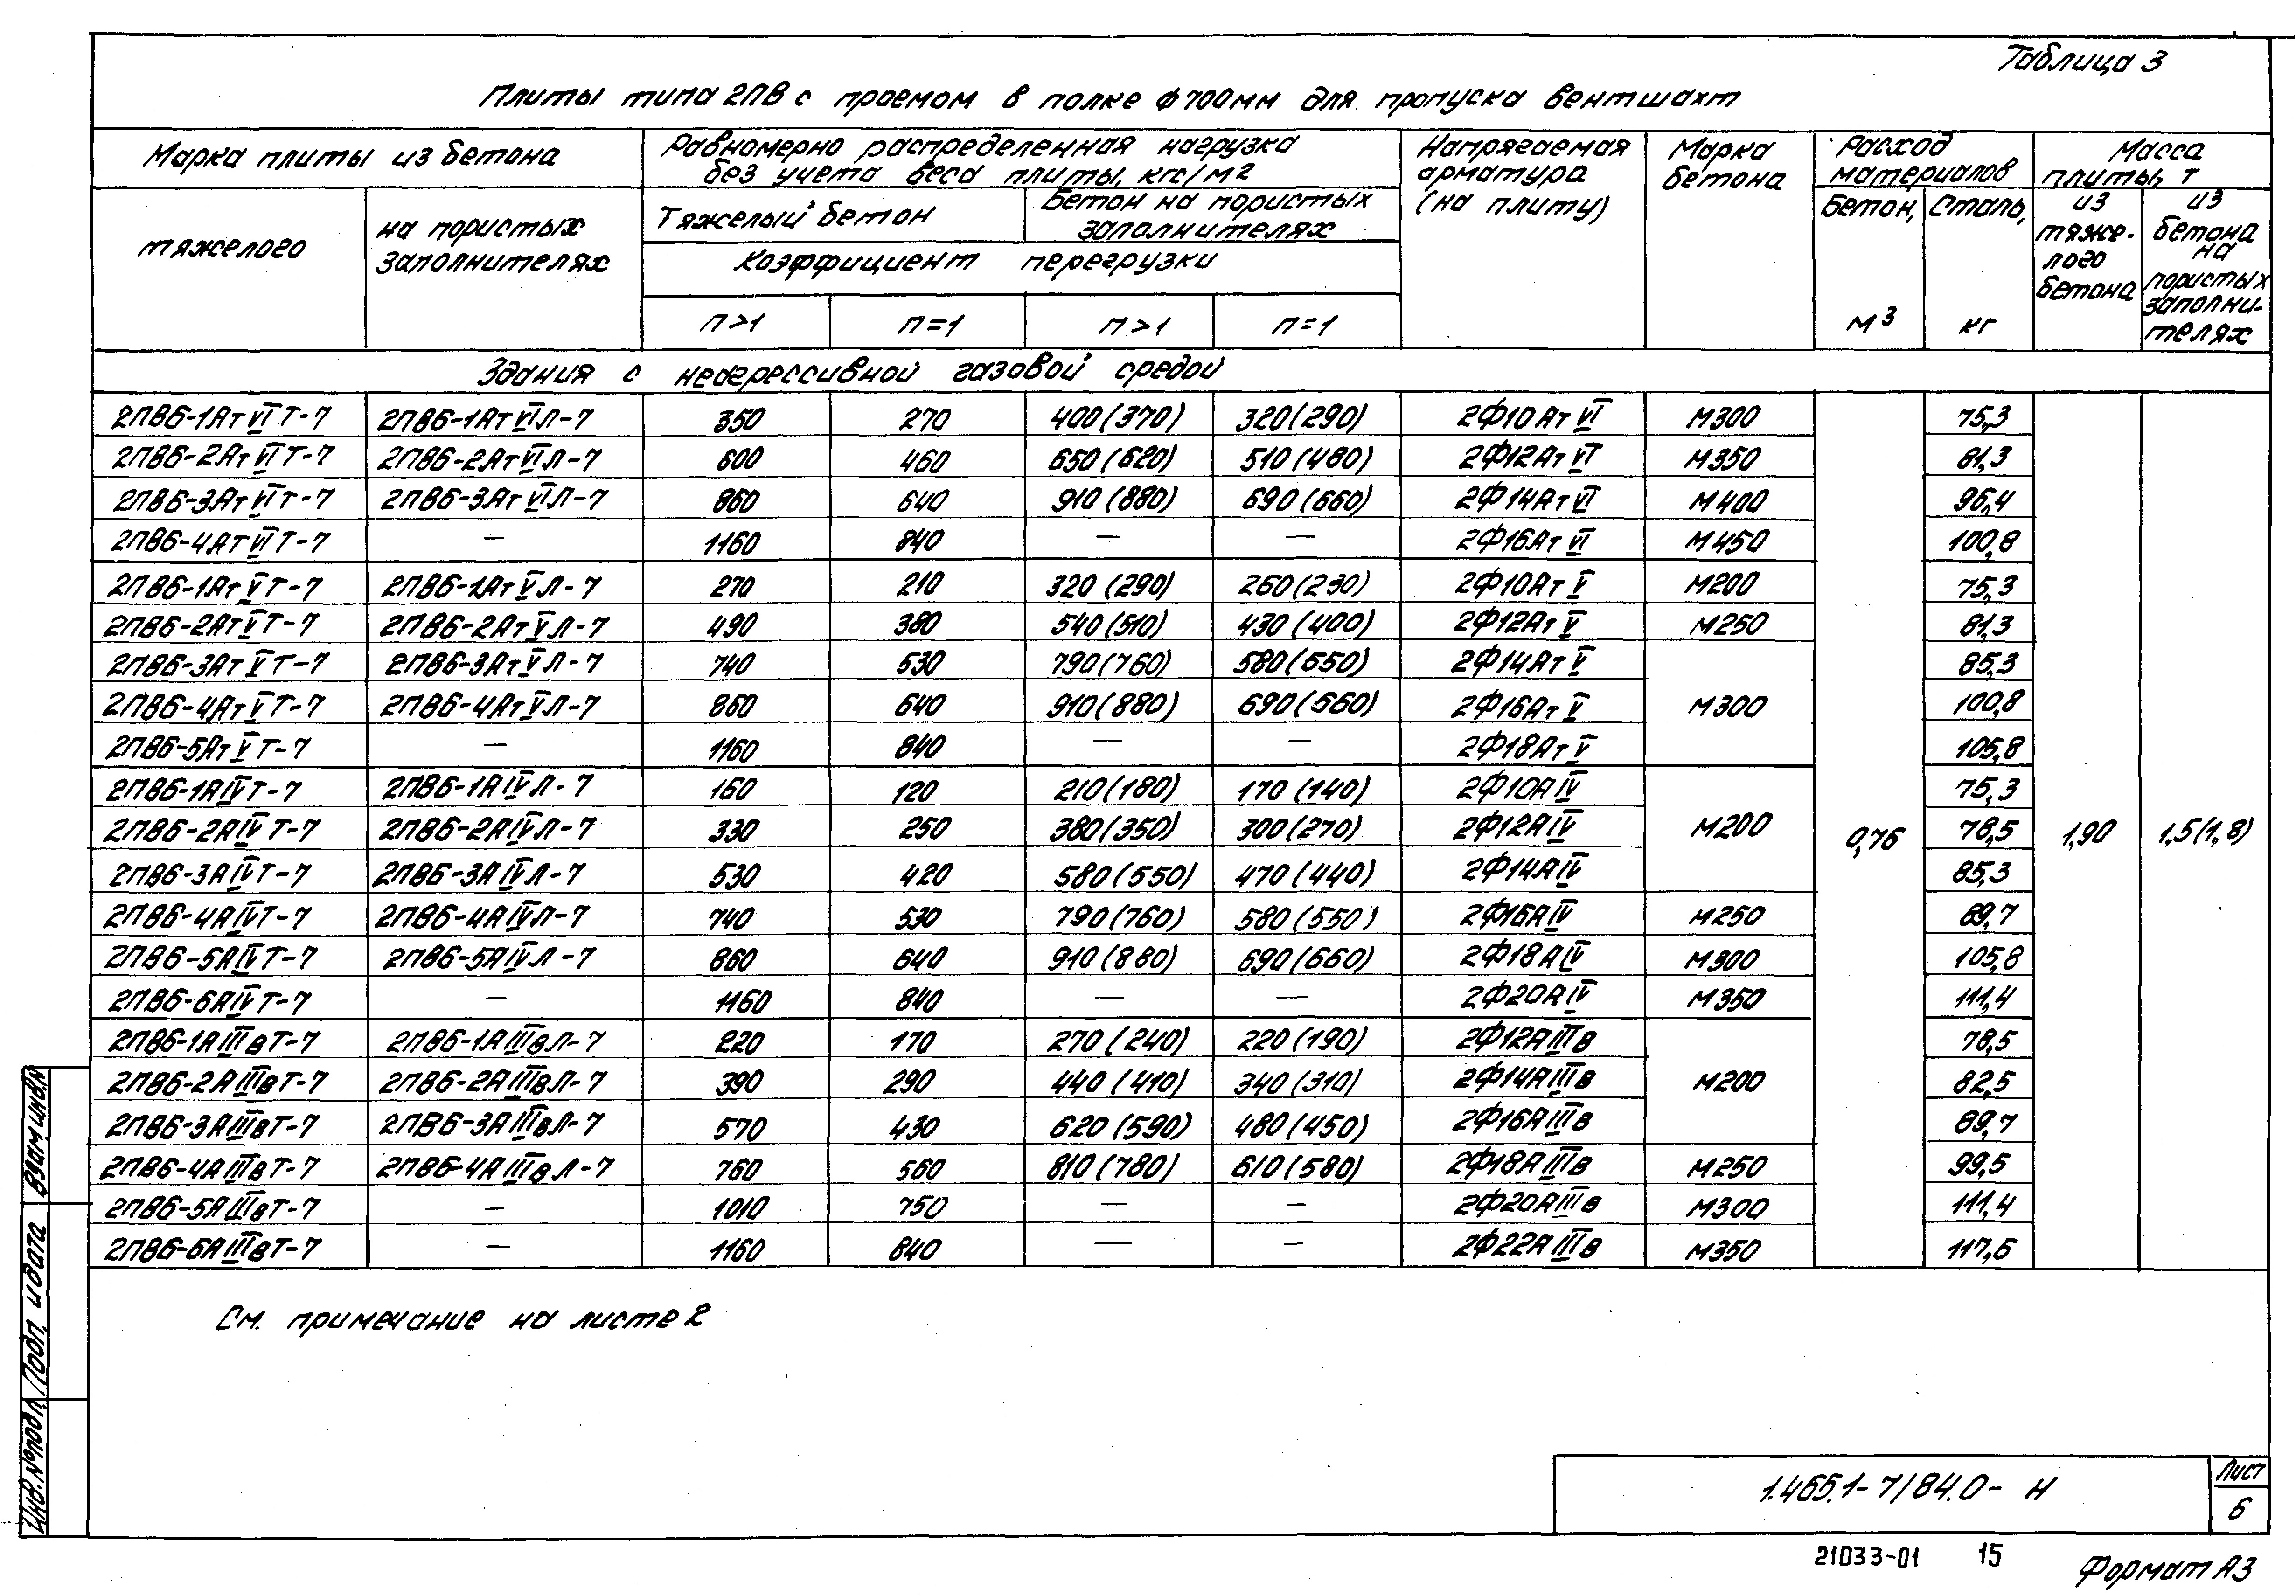 Таблица 3
Плиты типа 2ПВ с проемом в полке ф 700мм для пропуска вентшахт
Марка плиты из бетона
Равномерно распределенная нагрузка
без учета веса плиты, кгс/м2
Напрягаемая
арматура
(на плиту)
Марка
бетона
Расход
материалов
Масса
плиты, т
тяжелого
на пористых
заполнителях
Тяжелый бетон
Бетон на пористых
заполнителях
Коэффициент перегрузки
п>1 п=1 п>1 п=1
Бетон,
м3
Сталь,
кг
из
тяже-
лого
бетона
из
бетона
на
пористых
заполни-
телях
Здания с неагрессивной газовой средой
2ПВ6-1АтVIТ-7 2ПВ6-1АтVIЛ-7 350 270 400(370) 320(290) 2Ф10АтVI М300 75,3
2ПВ6-2АтVIТ-7 2ПВ6-2АтVIЛ-7 600 460 650(620) 510(480) 2Ф12АтVI М350 81,3
2ПВ6-3АтVIТ-7 2ПВ6-3АтVIЛ-7 860 640 910(880) 690(660) 2Ф14АтVI М400 96,4
2ПВ6-4АтVIТ-7 — 1160 840 — — 2Ф16АтVI М450 100,8
2ПВ6-1АтVТ-7 2ПВ6-1АтVЛ-7 270 210 320(290) 260(230) 2Ф10АтV М200 75,3
2ПВ6-2АтVТ-7 2ПВ6-2АтVЛ-7 490 380 540(510) 430(400) 2Ф12АтV М250 81,3
2ПВ6-3АтVТ-7 2ПВ6-3АтVЛ-7 740 530 790(760) 580(550) 2Ф14АтV 85,3
2ПВ6-4АтVТ-7 2ПВ6-4АтVЛ-7 860 640 910(880) 690(660) 2Ф16АтV М300 100,8
2ПВ6-5АтVТ-7 — 1160 840 — — 2Ф18АтV 105,8
2ПВ6-1АIVТ-7 2ПВ6-1АIVЛ-7 160 120 210(180) 170(140) 2Ф10АIV 75,3
2ПВ6-2АIVТ-7 2ПВ6-2АIVЛ-7 330 250 380(350) 300(270) 2Ф12АIV М200 0,76 78,5 1,90 1,5(1,8)
2ПВ6-3АIVТ-7 2ПВ6-3АIVЛ-7 530 420 580(550) 470(440) 2Ф14АIV 85,3
2ПВ6-4АIVТ-7 2ПВ6-4АIVЛ-7 740 530 790(760) 580(550) 2Ф16АIV М250 89,7
2ПВ6-5АIVТ-7 2ПВ6-5АIVЛ-7 860 640 910(880) 690(660) 2Ф18АIV М300 105,8
2ПВ6-6АIVТ-7 — 1160 840 — — 2Ф20АIV М350 111,4
2ПВ6-1АIIIвТ-7 2ПВ6-1АIIIвЛ-7 220 170 270(240) 220(190) 2Ф12АIIIв 78,5
2ПВ6-2АIIIвТ-7 2ПВ6-2АIIIвЛ-7 390 290 440(410) 340(310) 2Ф14АIIIв М200 82,5
2ПВ6-3АIIIвТ-7 2ПВ6-3АIIIвЛ-7 570 430 620(590) 480(450) 2Ф16АIIIв 89,7
2ПВ6-4АIIIвТ-7 2ПВ6-4АIIIвЛ-7 760 560 810(780) 610(580) 2Ф18АIIIв М250 99,5
2ПВ6-5АIIIвТ-7 — 1010 750 — — 2Ф20АIIIв М300 111,4
2ПВ6-6АIIIвТ-7 — 1160 840 — — 2Ф22АIIIв М350 117,6
См. примечание на листе 2
Инв.№подл. Подп. и дата Взам.инв.№
1.465.1-7/84.0- Н
Лист
6
21033-01 15
Формат А3